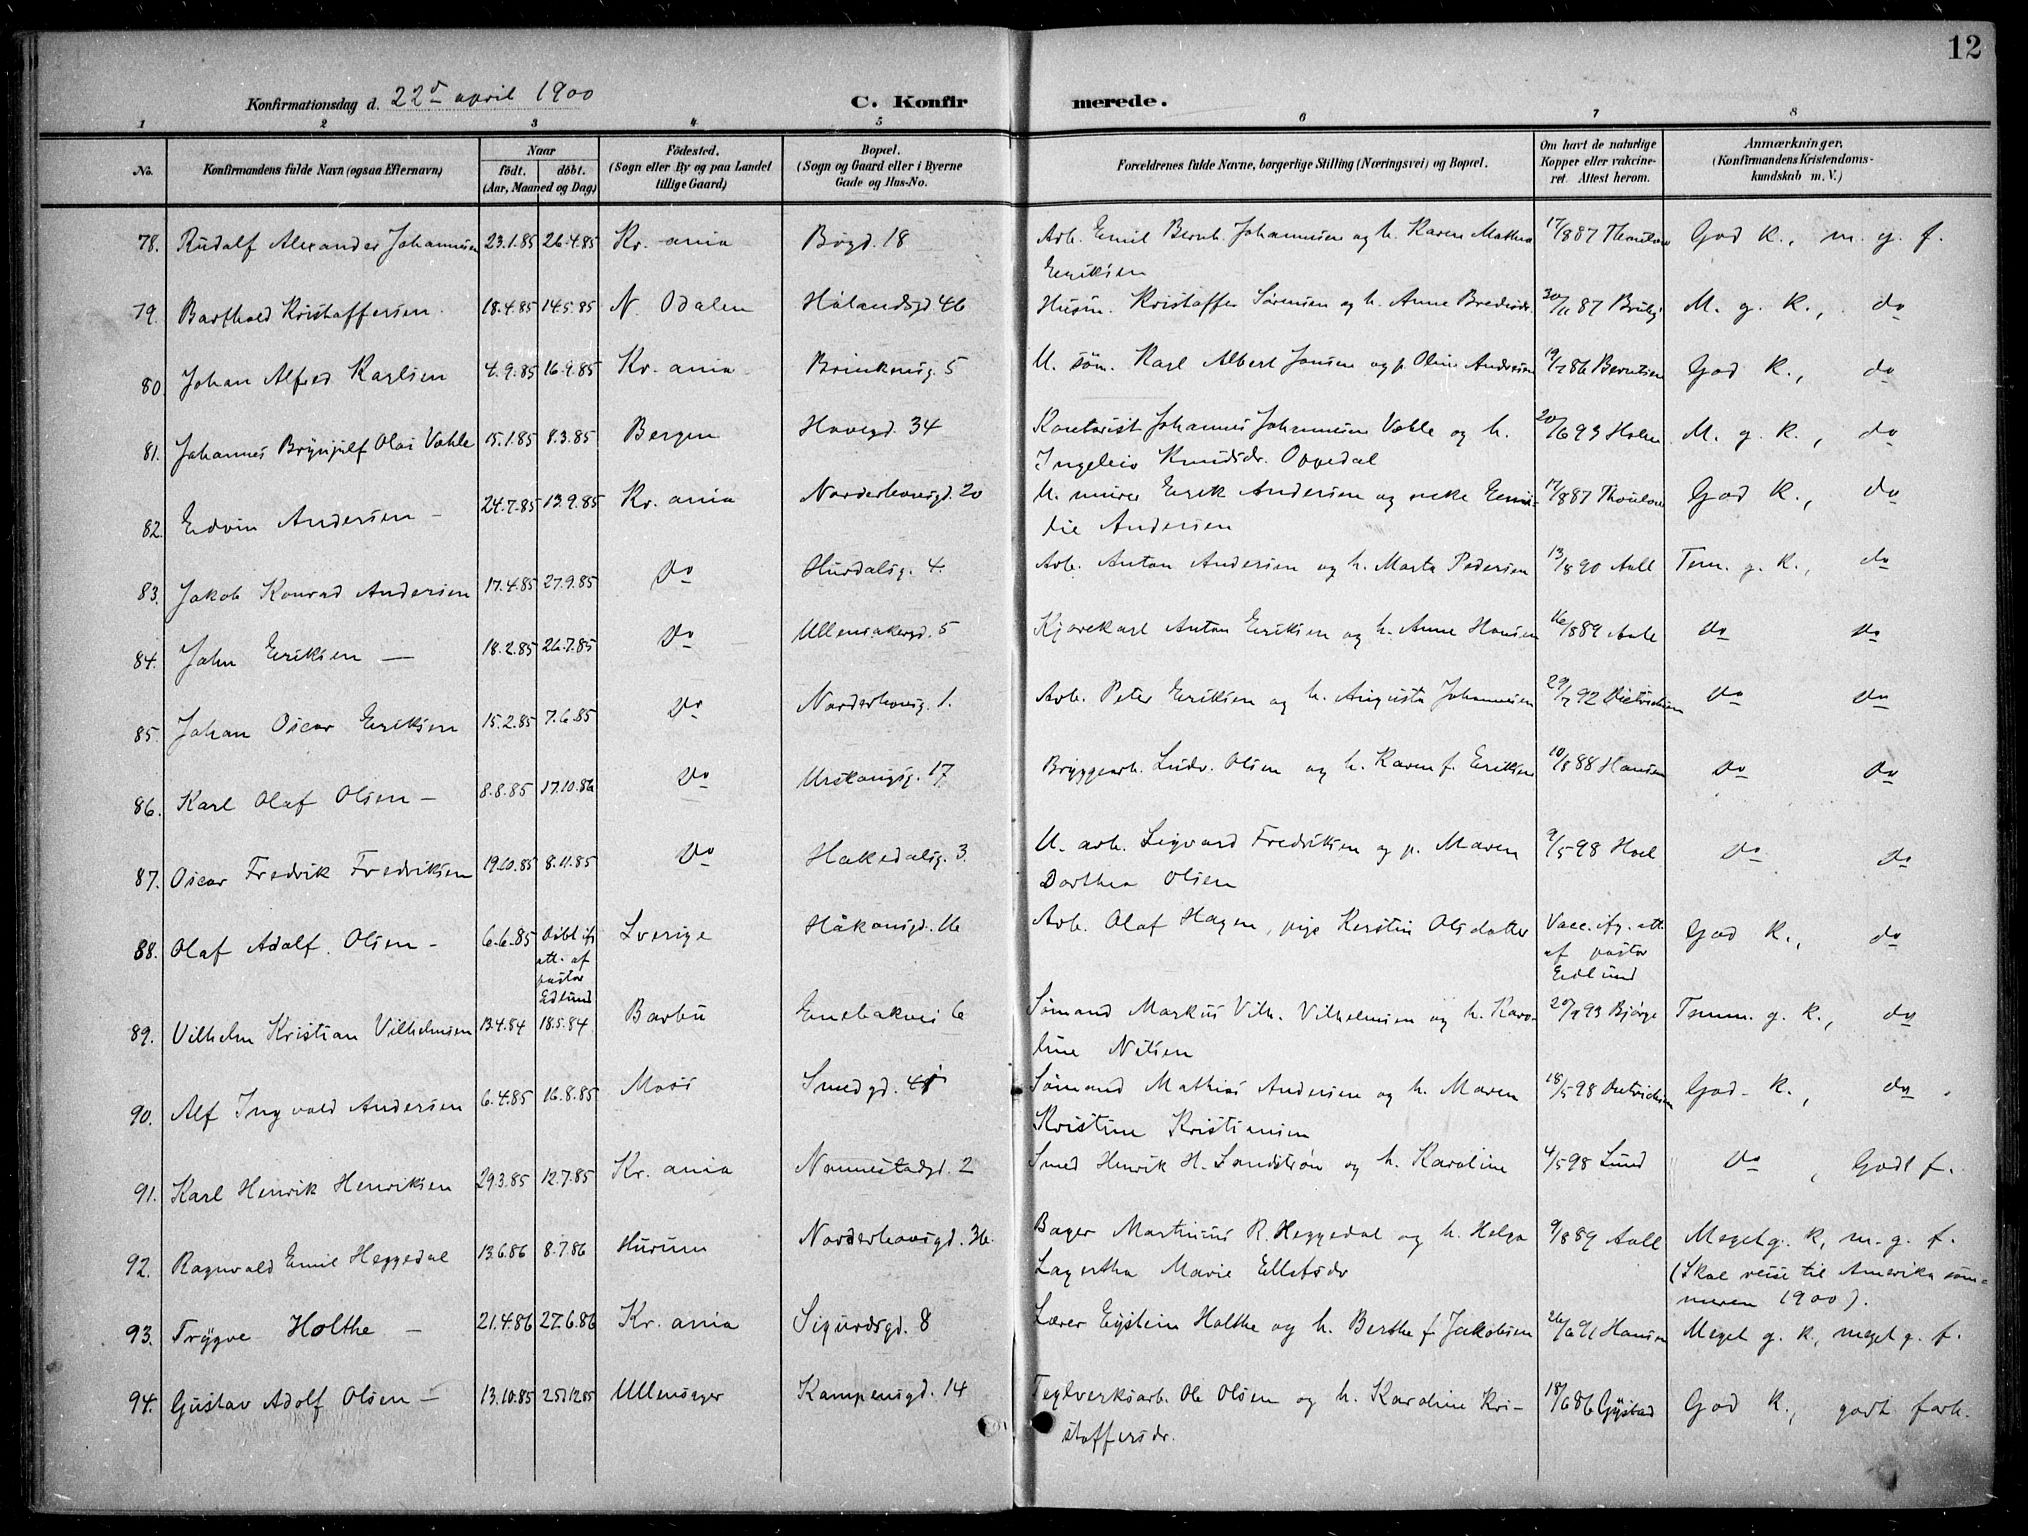 12
Konfirmationsdag d. 22de april 1900
C. Konfirmerede.
1 2 3 4 5 6 7 8
No. Konfirmandens fulde Navn (ogsaa Efternavn) Naar født. døbt. (Aar, Maaned og Dag) Fødested. (Sogn eller By og paa Landet tillige Gaard) Bopæl. (Sogn og Gaard eller i Byerne Gade og Hus-No. Forældrenes fulde Navne, borgerlige Stilling (Næringsvei) og Bopæl. Om havt de naturlige Kopper eller vakcineret. Attest herom. Anmærkninger. (Konfirmandens Kristendomskundskab m. V.)
78. Rudolf Alexander Johannesen 23.1.85 26.4.85 Kr.ania Bøgd. 18 Arb. Emil Bernh. Johannesen og h. Karen Mathea 17/8 87 Thoulow God K., m. g. f.
Eeriksen
79. Barthold Kristoffersen 18.4.85 14.5.85 N. Odalen Hølandsgd 46 Husm. Kristoffer Sørensen og h. Anne Bredesdr. 20/11 87 M. g. K., do
80. Johan Alfred Karlsen 4.9.85 16.9.85 Kr.ania Brinkensg. 5 U. søm. Karl Albert Jonsen og p. Oline Andersen 19/7 86 Berntsen God K., do
81. Johannes Brynjulf Olai Vahle 15.1.85 8.3.85 Bergen Hovegd. 34 Kontorist Johannes Johannesen Vahle og h. 20/6 93 Holm M. g. K., do
Ingeleiv Knudsdr. Oppedal
82. Edvin Andersen – 24.7.85 13.9.85 Kr.ania Norderhovsgd. 20 U. murer Eerik Andersen og enke Eemi- 17/8 87 Thoulow God K., do
lie Andersen
83. Jakob Konrad Andersen 17.4.85 27.9.85 Do Hurdalsg. 4. Arb. Anton Andersen og h. Marta Pedersen 13/8 90 Aall Tem. g. K., do
84. John Eeriksen — 18.2.85 26.7.85 Do Ullensakergd. 5 Kjørekarl Anton Eeriksen og h. Anne Hansen 16/8 89 Aall do do
85. Johan Oscar Eeriksen 15.2.85 7.6.85 Do Norderhovsg. 1. Arb. Peter Eeriksen og h. Augusta Johannesen 29/7 92 Dietrichson do do
86. Karl Olaf Olsen – 8.8.85 17.10.86 Do Urskougsg. 17 Bryggearb. Ludv. Olsen og h. Karen f. Eeriksen 10/8 88 Hansen do do
87. Oscar Fredrik Fredriksen 19.10.85 8.11.85 Do Hakedalsg. 3. U. arb. Sigvard Fredriksen og p. Maren 9/5 98 Hoel do do
Dorthea Olsen
88. Olaf Adolf. Olsen – 6.6.85 Døbt ifø. att. af pastor Edlund Sverige Håkonsgd. 16 Arb. Olaf Hagen, pige Kerstin Olsdatter Vacc. ifg. att. af pastor Edlund God K., do
89. Vilhelm Kristian Vilhelmsen 13.4.84 18.5.84 Barbu Enebakvei 6 Sømand Markus Vilh. Vilhelmsen og h. Karo- 20/9 93 Bjørge Temm. g. K., do
line Nilsen
90. Alf Ingvald Andersen 6.4.85 16.8.85 Moss Smedgd. Sømand Mathias Andersen og h. Maren 18/5 98 Dietrichson God K., do
Kristine Kristiansen
91. Karl Henrik Henriksen 29.3.85 12.7.85 Kr.ania Nannestadgd. 2 Smed Henrik H. Sandstrøm og h. Karoline 4/5 98 Lund do, Godt f.
92. Ragnvald Emil Heggedal 13.6.86 8.7.86 Hurum Norderhovsgd. 36. Bager Martinius R. Heggedal og h. Helga 9/8 89 Aall Meget g. K, m. g. f.
Lagertha Marie Ellefsdr (Skal reise til Amerika som-
meren 1900).
93. Trygve Holthe – 21.4.86 27.6.86 Kr.ania Sigurdsgd. 8 Lærer Eystein Holthe og h. Berthe f. Jakobsen 26/6 91 Hansen Meget g. K, meget g. f.
94. Gustav Adolf Olsen – 13.10.85 25.12.85 Ullensager Kampensgd. 14 Teglverksarb. Ole Olsen og h. Karoline Kri- 18/6 86 Gystad God K., godt forh.
stoffersdr.